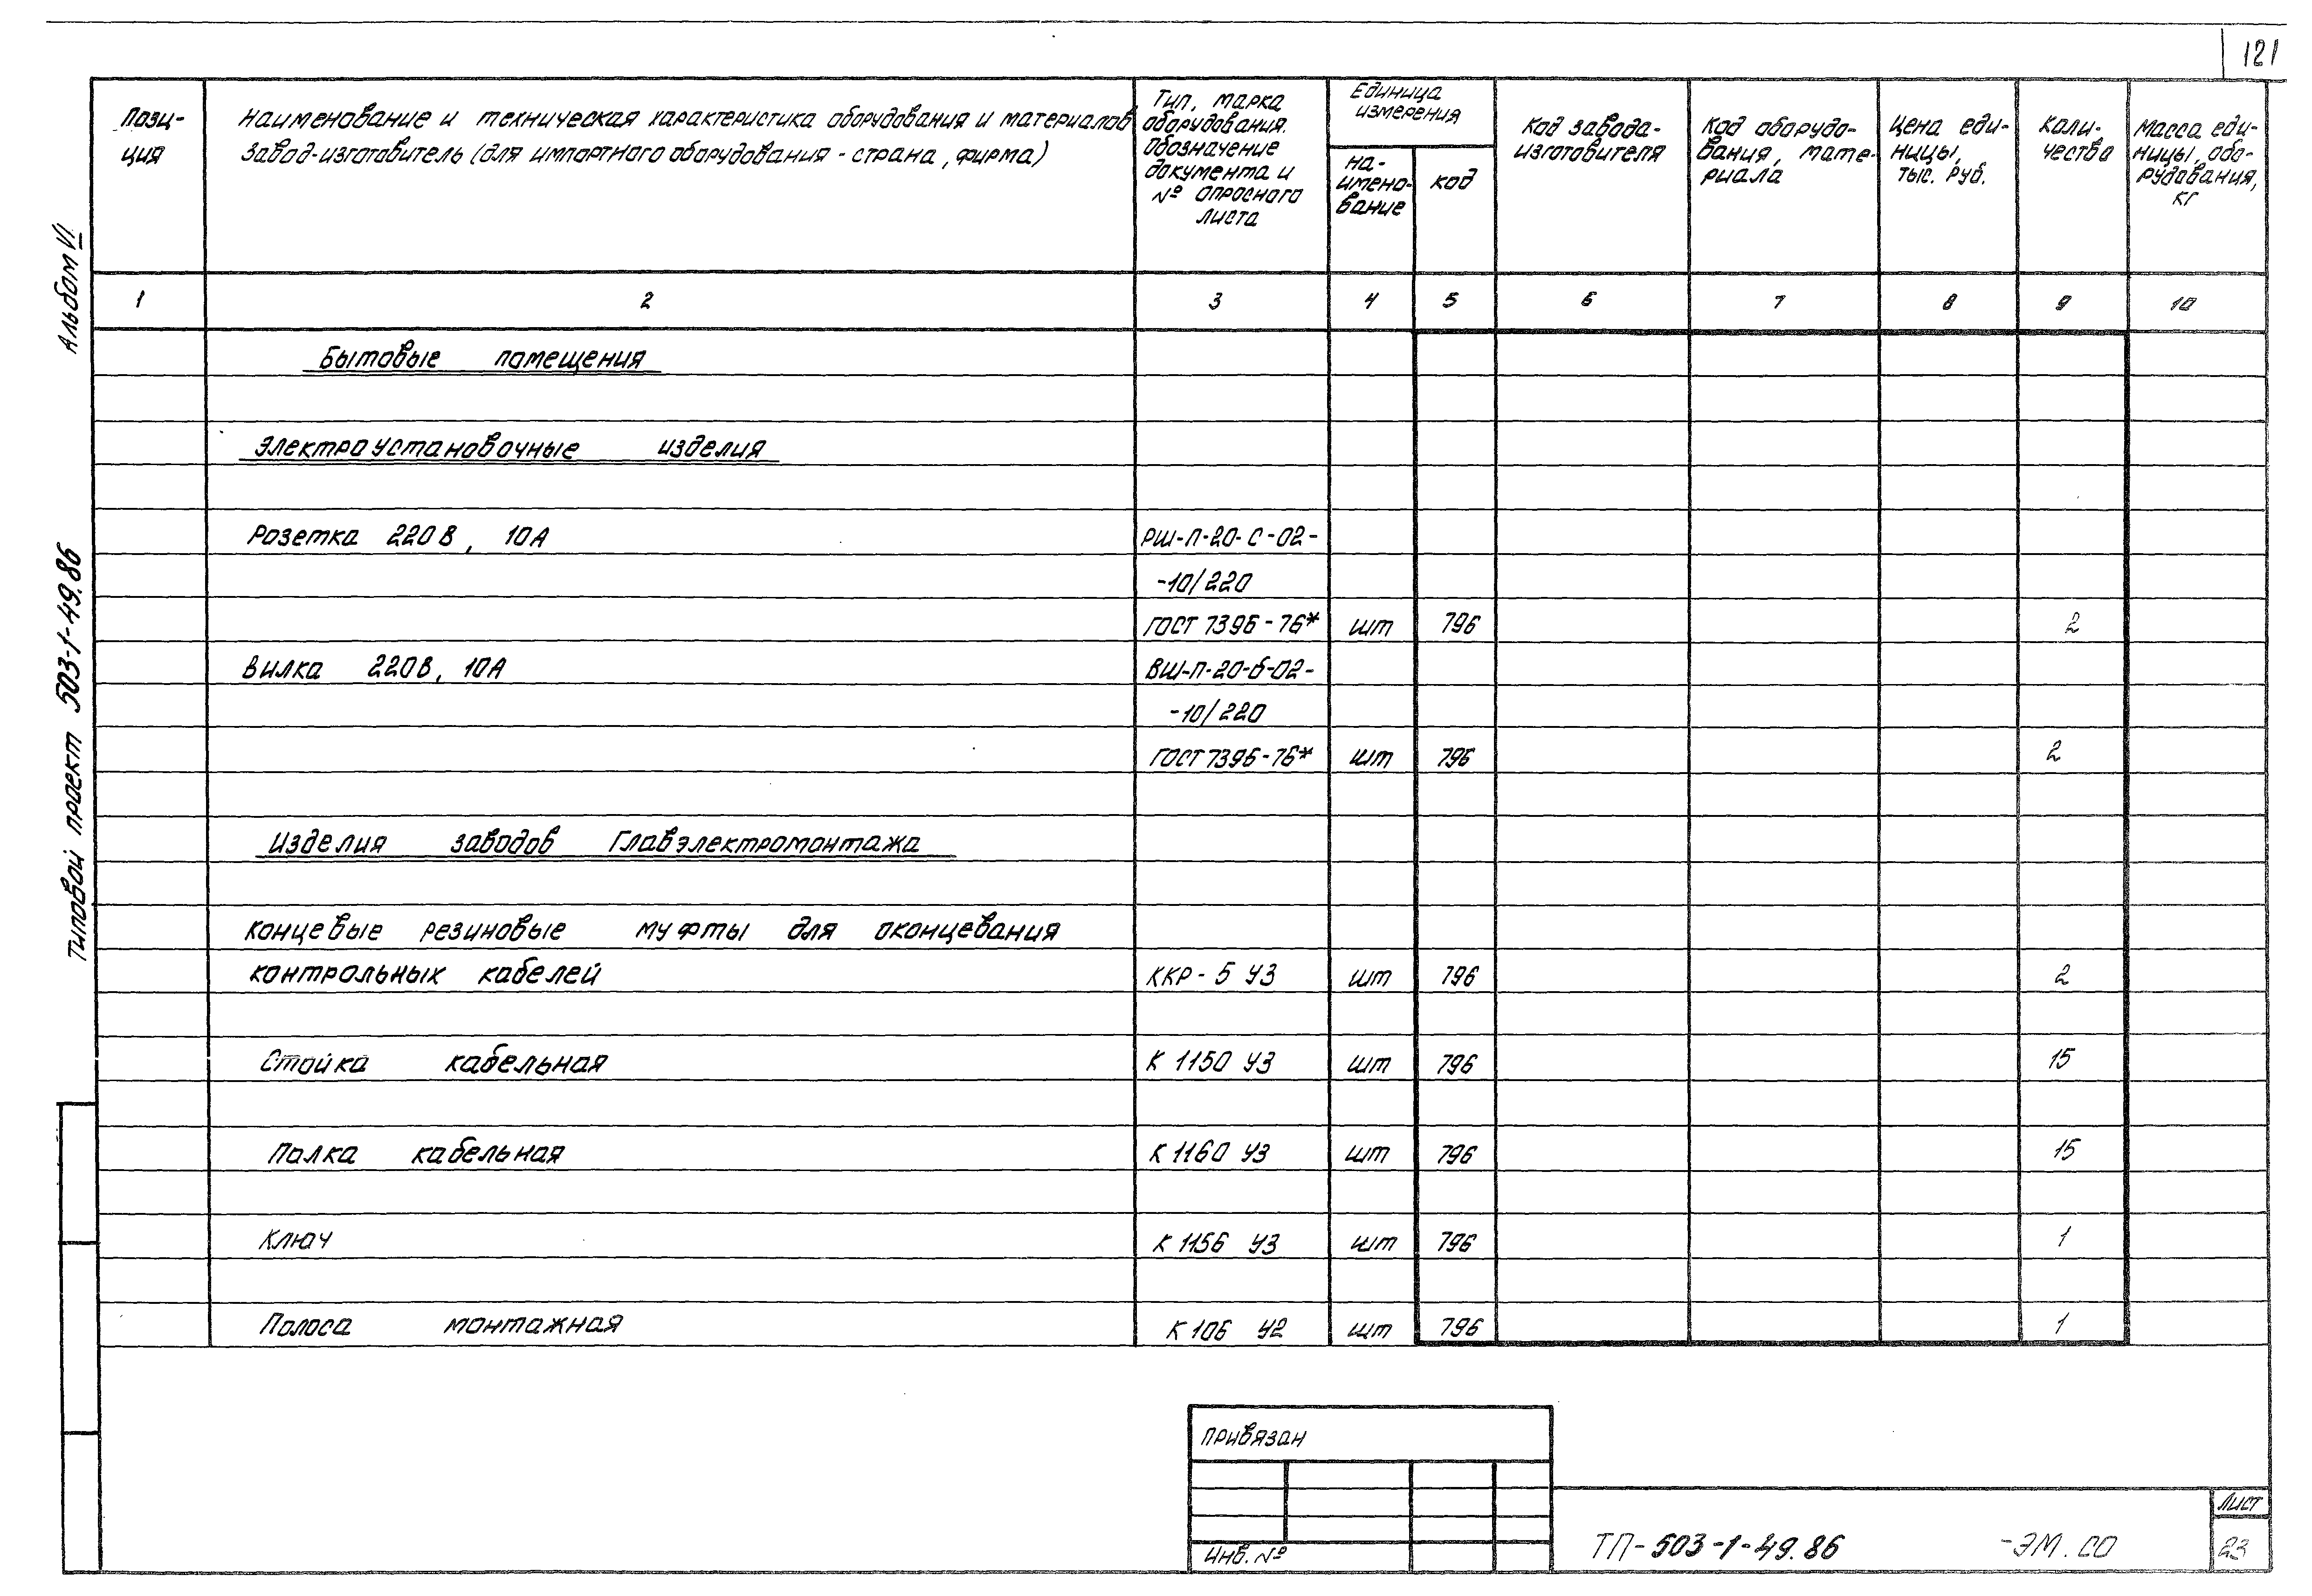 121
Альбом VI
Типовой проект 503-1-49.86
Пози-
ция
Наименование и техническая характеристика оборудования и материалов
Завод-изготовитель (для импортного оборудования - страна, фирма)
Тип, марка
оборудования.
Обозначение
документа и
№ опросного
листа
Единица
измерения
На-
имено-
вание
код
Код завода-
изготовителя
Код оборудо-
вания, мате-
риала
Цена еди-
ницы,
тыс. руб.
Коли-
чество
Масса еди-
ницы, обо-
рудования,
кг
1 2 3 4 5 6 7 8 9 10
Бытовые помещения
Электроустановочные изделия
Розетка 220В, 10А РШ-п-20-С-02-
-10/220
ГОСТ 7396-76* шт 796 2
Вилка 220В, 10А ВШ-п-20-б-02-
-10/220
ГОСТ 7396-76* шт 796 2
Изделия заводов Главэлектромонтажа
Концевые резиновые муфты для оконцевания
контрольных кабелей ККР-5 У3 шт 796 2
Стойка кабельная К 1150 У3 шт 796 15
Полка кабельная К 1160 У3 шт 796 15
Ключ К 1156 У3 шт 796 1
Полоса монтажная К 106 У2 шт 796 1
Привязан
Инв. №
ТП-503-1-49.86 -ЭМ.СО
Лист
23